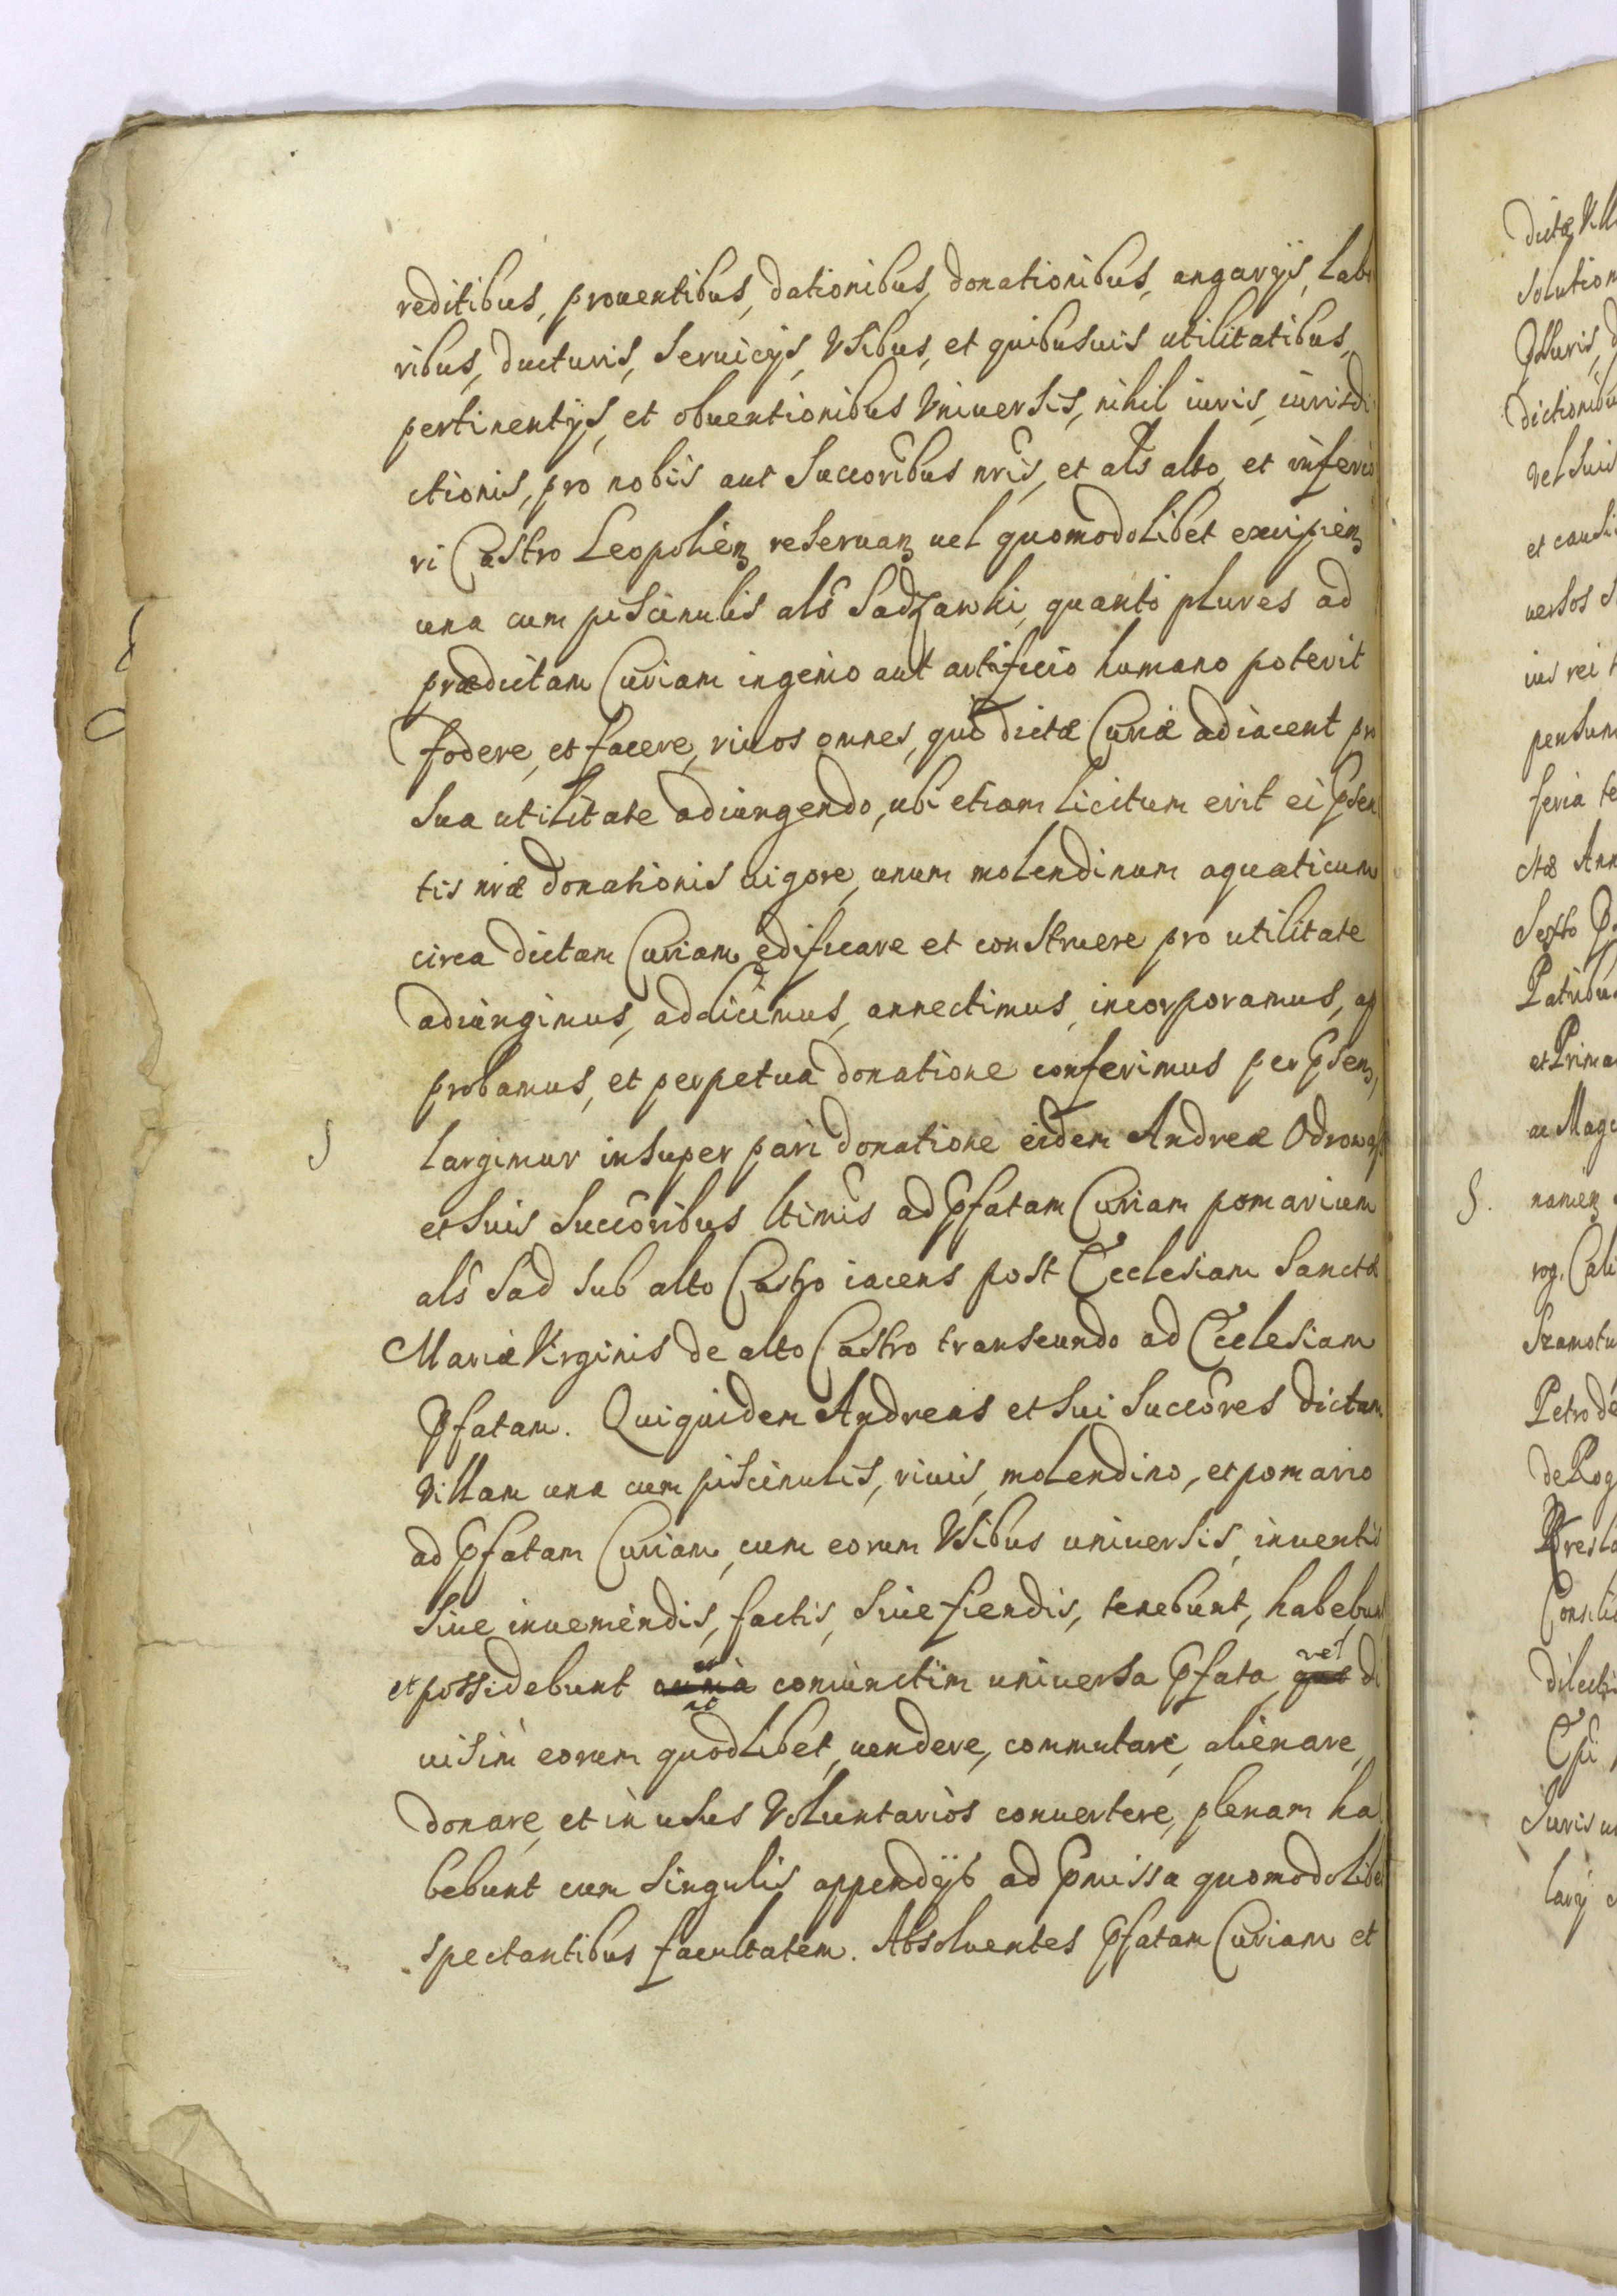 reditibus, prouentibus, dationibus, donationibus, angarijs, labo
ribus, ducturis, seruicijs, Vsibus, et quibusuis utilitatibus,
pertinentijs, et obuentionibus Vniuersis, nihil iuris, iurisdi
ctionis, pro nobis aut Succoribus nris, et als alto, et inferio
ri Castro Leopolien reseruan uel quomodolibet excipien
una cum piscinulis als Sadzawki, quanto plures ad
prædictam Curiam ingenio aut artificio humano poterit
fodere, et facere, riuos omnes, qui dictæ Curiæ adiacent pro
sua utilitate adiungendo, ubi etiam licitum erit ei psen
tis nræ donationis uigore, unum molendinum aquaticum
circa dictam Curiam edificare et construere pro utilitate
adiungimus, addicimus, annectimus, incorporamus, ap
probamus, et perpetua donatione conferimus per psens,
S largimur insuper pari donatione eidem Andreæ Odrowąs
et suis Succoribus ltimis ad pfatam Curiam pomarium
als Sad sub alto Castro iacens post Ecclesiam Sanctæ
Mariæ Virginis de alto Castro transeundo ad Ecclesiam
pfatam. Qui quidem Andreas et sui Succores dictam
Villam una cum piscinulis, riuis, molendino, et pomario
ad pfatam Curiam, cum eorum Vsibus uniuersis, inuentis
siue inueniendis, factis, siue fiendis, tenebunt, habebunt
et possidebunt coniunctim uniuersa pfata vel di
uisim eorum quodlibet, uendere, commutare, alienare,
donare, et in usus Voluntarios conuertere, plenam ha
bebunt cum singulis appendijs ad pmissa quomodolibet
spectantibus facultatem. Absoluentes pfatam Curiam et